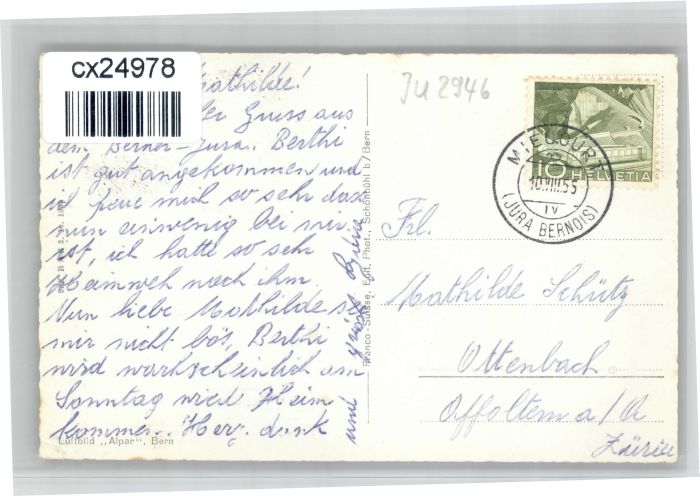 cx24978
Mathilde!
Gruss aus
dem Berner-Jura. Berthi
ist gut angekommen und
ich freue mich so sehr das
nun einwenig bei mir
ist, ich hatte so sehr
Heimweh nach ihm.
Nun liebe Mathilde sei
mir nicht bös, Berthi
wird warscheinlich am
Sonntag wied Heim
kommen. Herz. dank
und
Luftbild „Alpar", Bern
Franco-Suisse, Edit. Phot., Schönbühl b/Bern
Ju 2946
10
HELVETIA
MIÉCOURT
10.VIII.55
IV
(JURA BERNOIS)
Frl.
Mathilde Schütz
Ottenbach
Affoltern a/A
Zürich